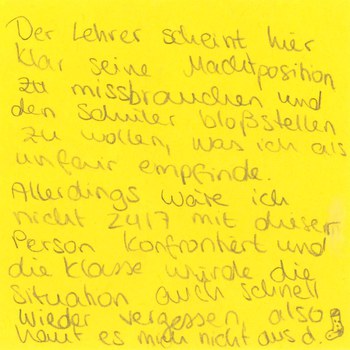 Der Lehrer scheint hier
klar seine Machtposition
zu missbrauchen und
den Schüler bloßstellen
zu wollen, was ich als
unfair empfinde.
Allerdings wäre ich
nicht 24/7 mit dieser
Person konfrontiert und
die Klasse würde die
Situation auch schnell
wieder vergessen, also
haut es mich nicht aus d.